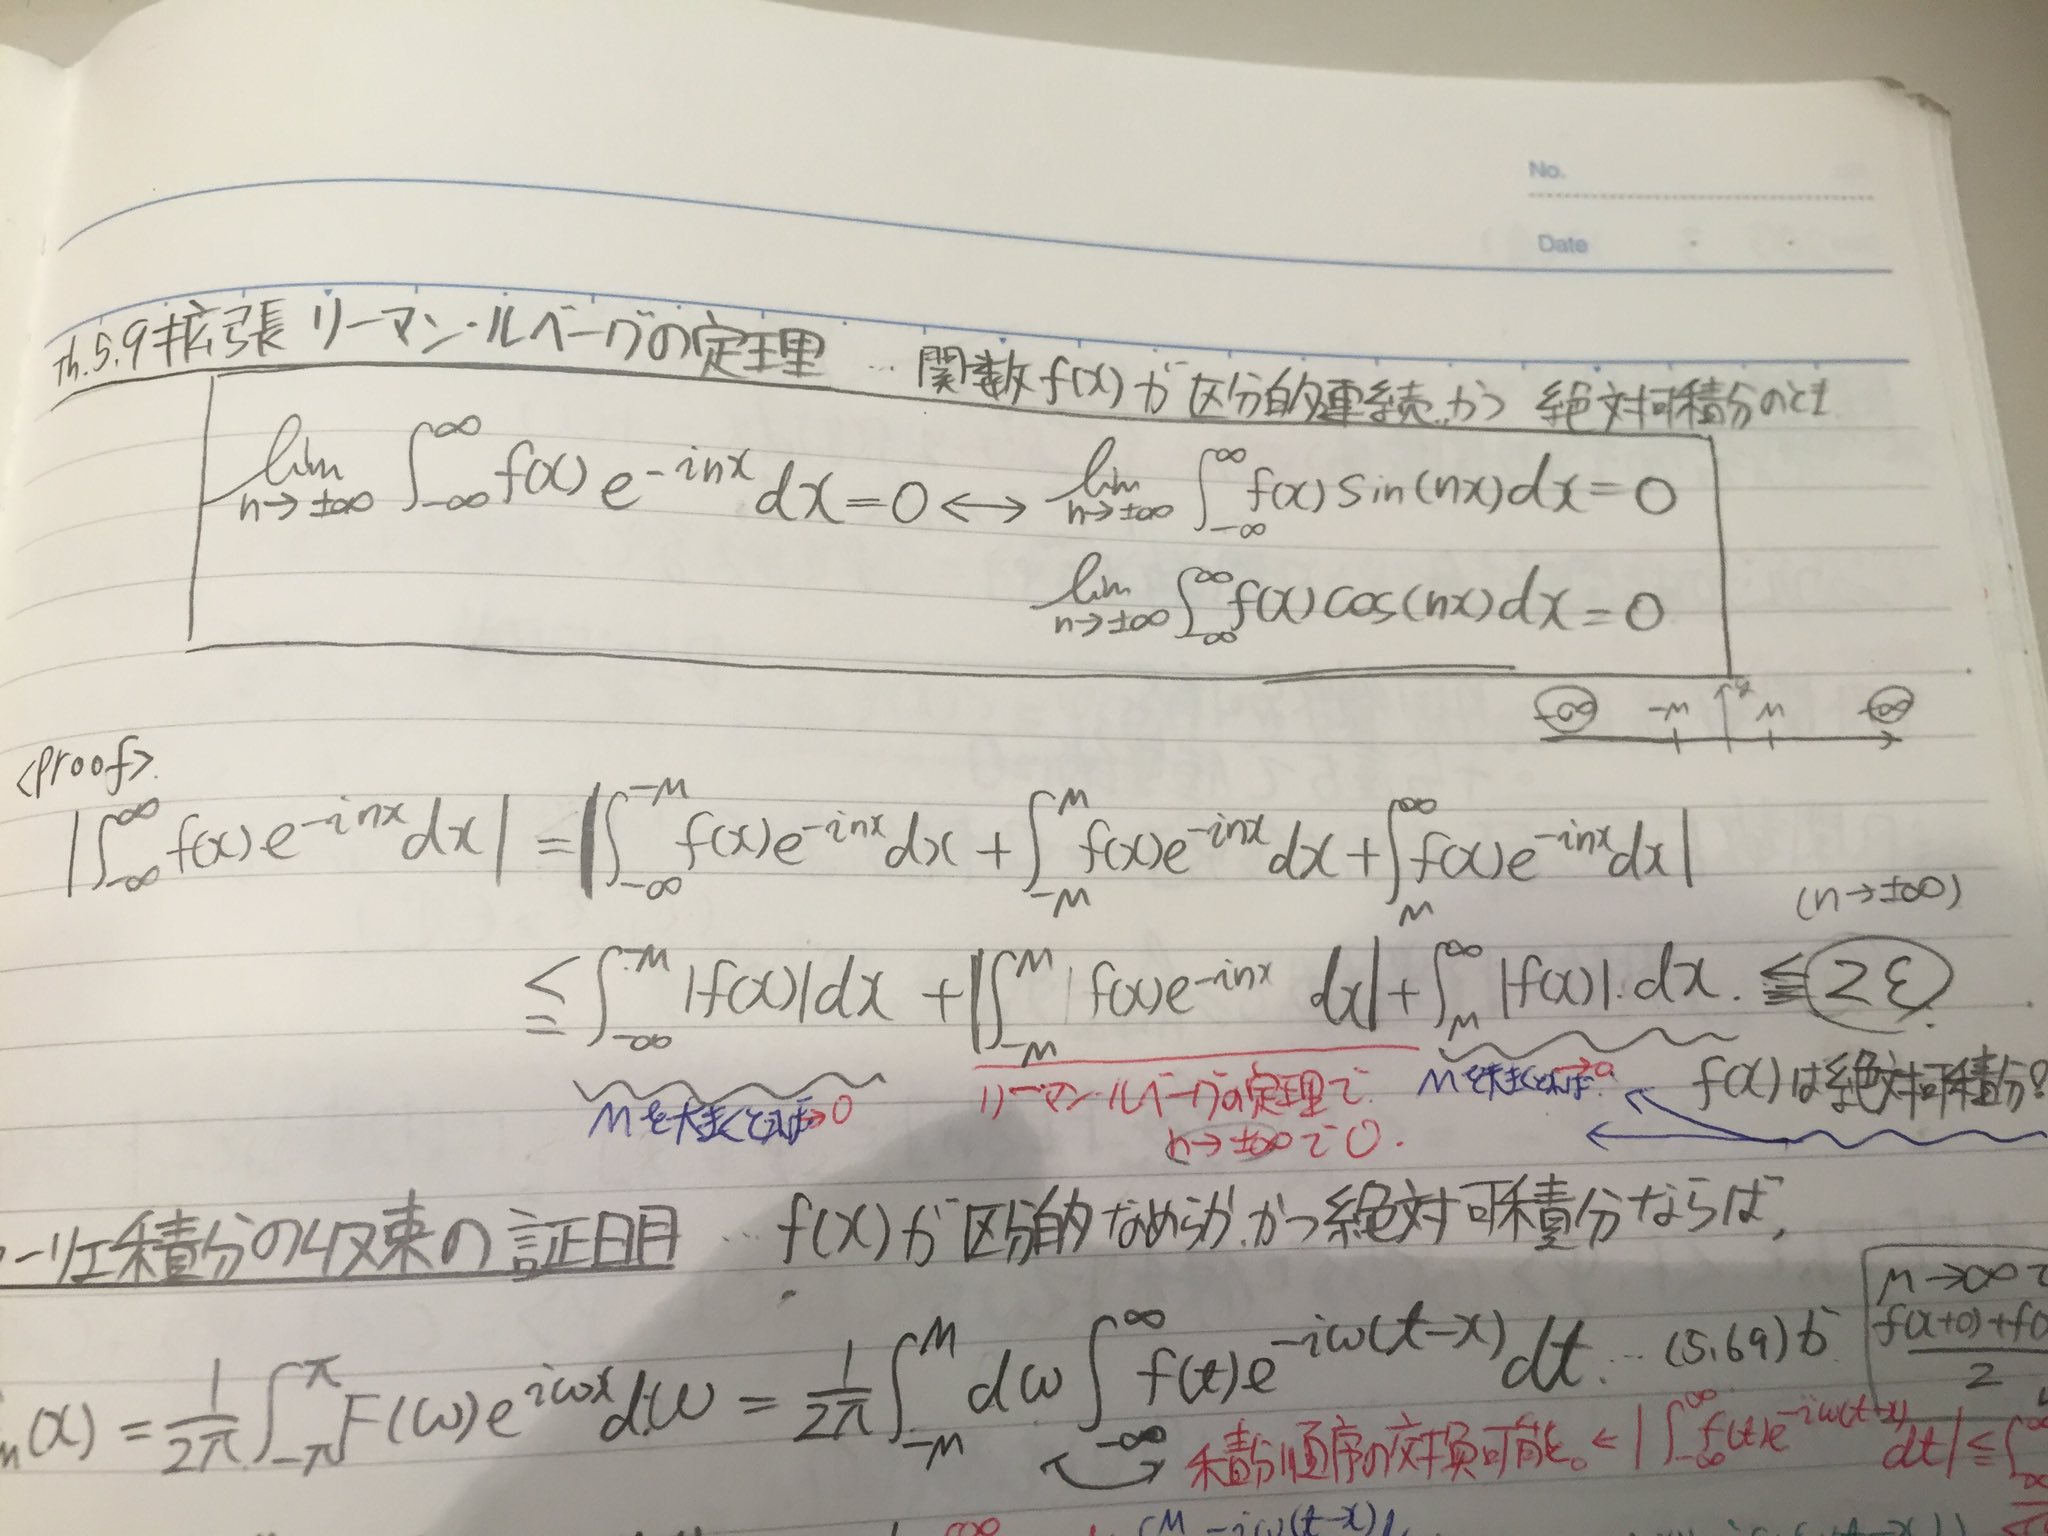 No.
Date
Th.5.9 拡張 リーマン・ルベーグの定理 … 関数f(x)が区分的連続かつ 絶対可積分のとき
lim n→±∞ ∫_{-∞}^{∞} f(x) e^{-inx} dx = 0 ↔ lim n→±∞ ∫_{-∞}^{∞} f(x) sin(nx) dx = 0
lim n→±∞ ∫_{-∞}^{∞} f(x) cos(nx) dx = 0
-∞ -M y M +∞
<proof>.
|∫_{-∞}^{∞} f(x) e^{-inx} dx| = |∫_{-∞}^{-M} f(x) e^{-inx} dx + ∫_{-M}^{M} f(x) e^{-inx} dx + ∫_{M}^{∞} f(x) e^{-inx} dx|
(n→±∞)
≦ ∫_{-∞}^{-M} |f(x)| dx + |∫_{-M}^{M} f(x) e^{-inx} dx| + ∫_{M}^{∞} |f(x)| dx. ≦ 2ε.
Mを大きくとれば→0 リーマン・ルベーグの定理で Mを大きくとれば→0 f(x)は絶対可積分
n→±∞で0.
ーリエ積分の収束の証明 … f(x)が区分的なめらか、かつ絶対可積分ならば,
(x) = 1/2π ∫_{-π}^{π} F(ω) e^{iωx} dω = 1/2π ∫_{-M}^{M} dω ∫_{-∞}^{∞} f(t) e^{-iω(t-x)} dt. … (5.69)が
M→∞で
f(x+0)+f(
2
積分順序の交換可能。← |∫_{-∞}^{∞} f(t) e^{-iω(t-x)} dt| ≦ ∫